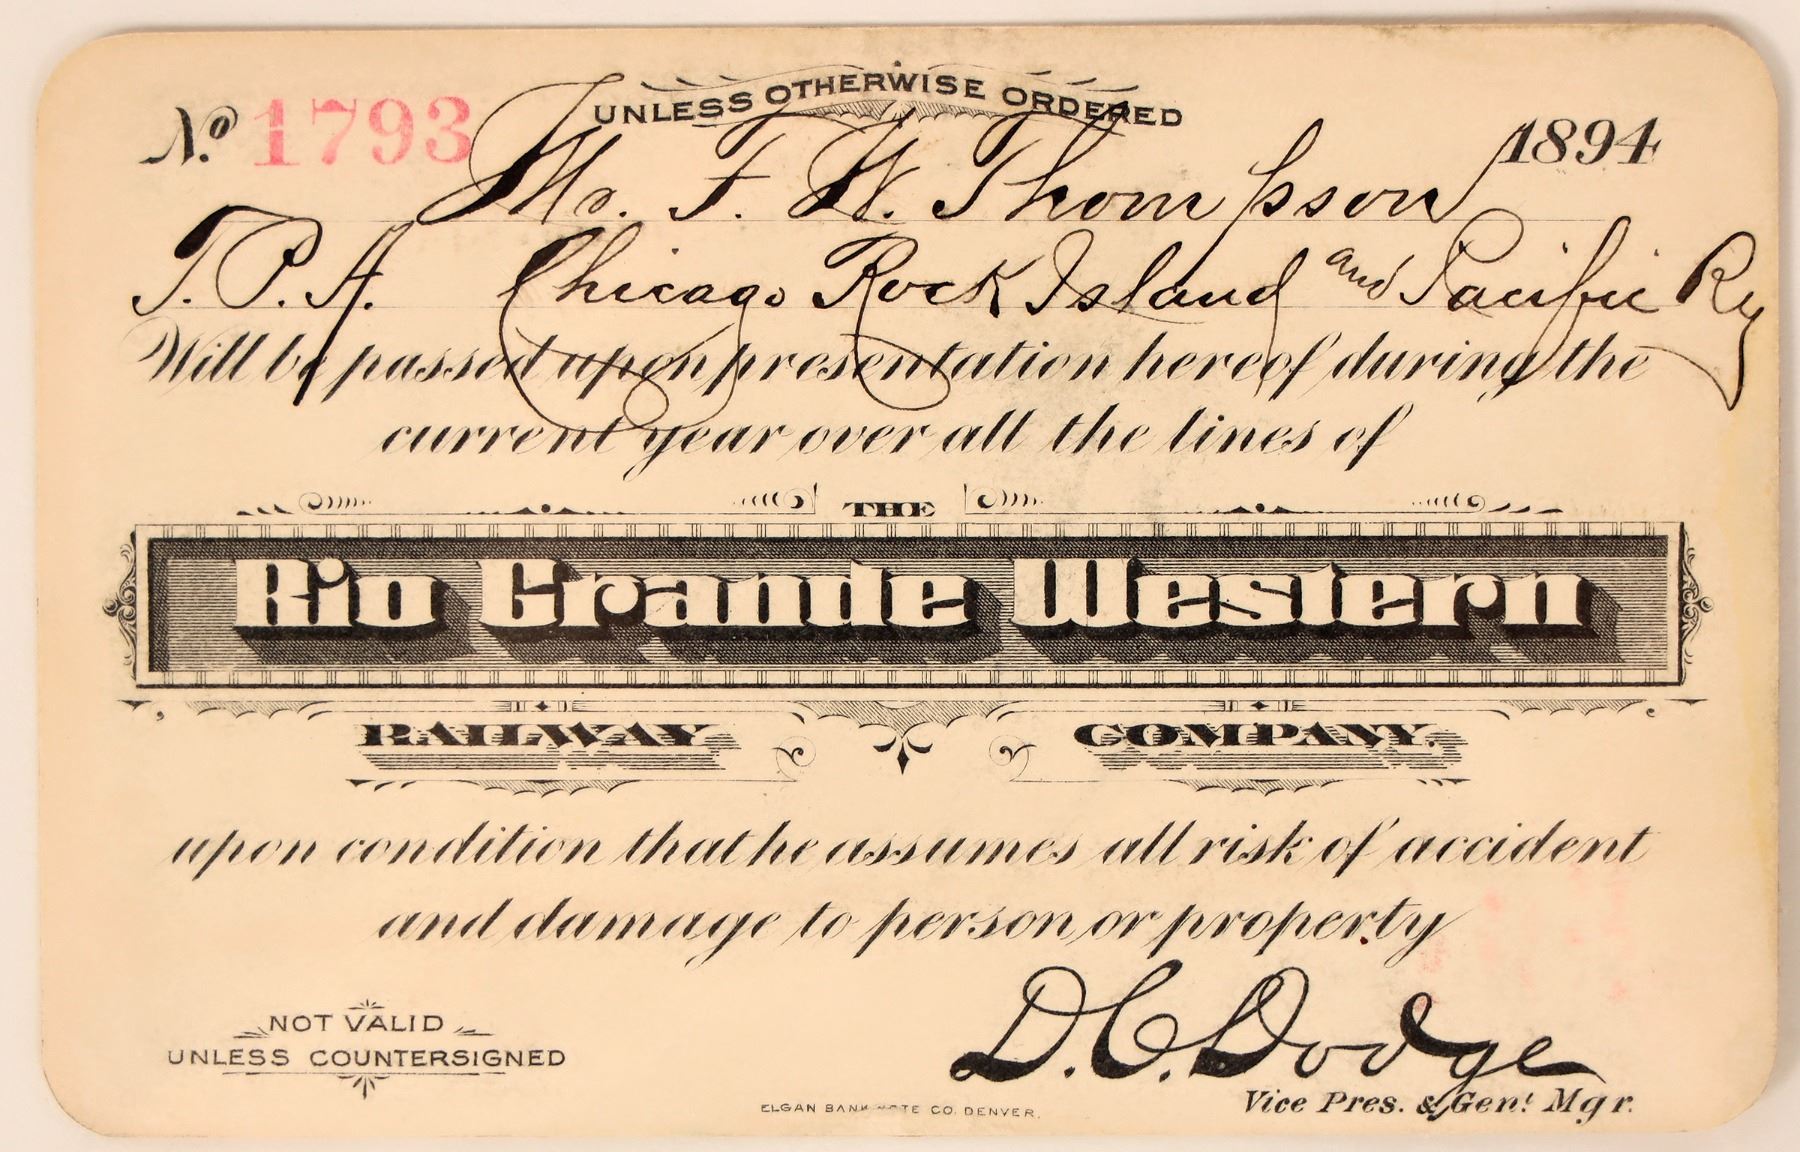 UNLESS OTHERWISE ORDERED
No. 1793 1894
Mr. F. W. Thompson
T. P. A. Chicago Rock Island and Pacific Ry
Will be passed upon presentation hereof during the
current year over all the lines of
THE
Rio Grande Western
RAILWAY COMPANY.
upon condition that he assumes all risk of accident
and damage to person or property
D. C. Dodge
NOT VALID
UNLESS COUNTERSIGNED
Vice Pres. & Gen! Mgr.
ELGAN BANK NOTE CO. DENVER.